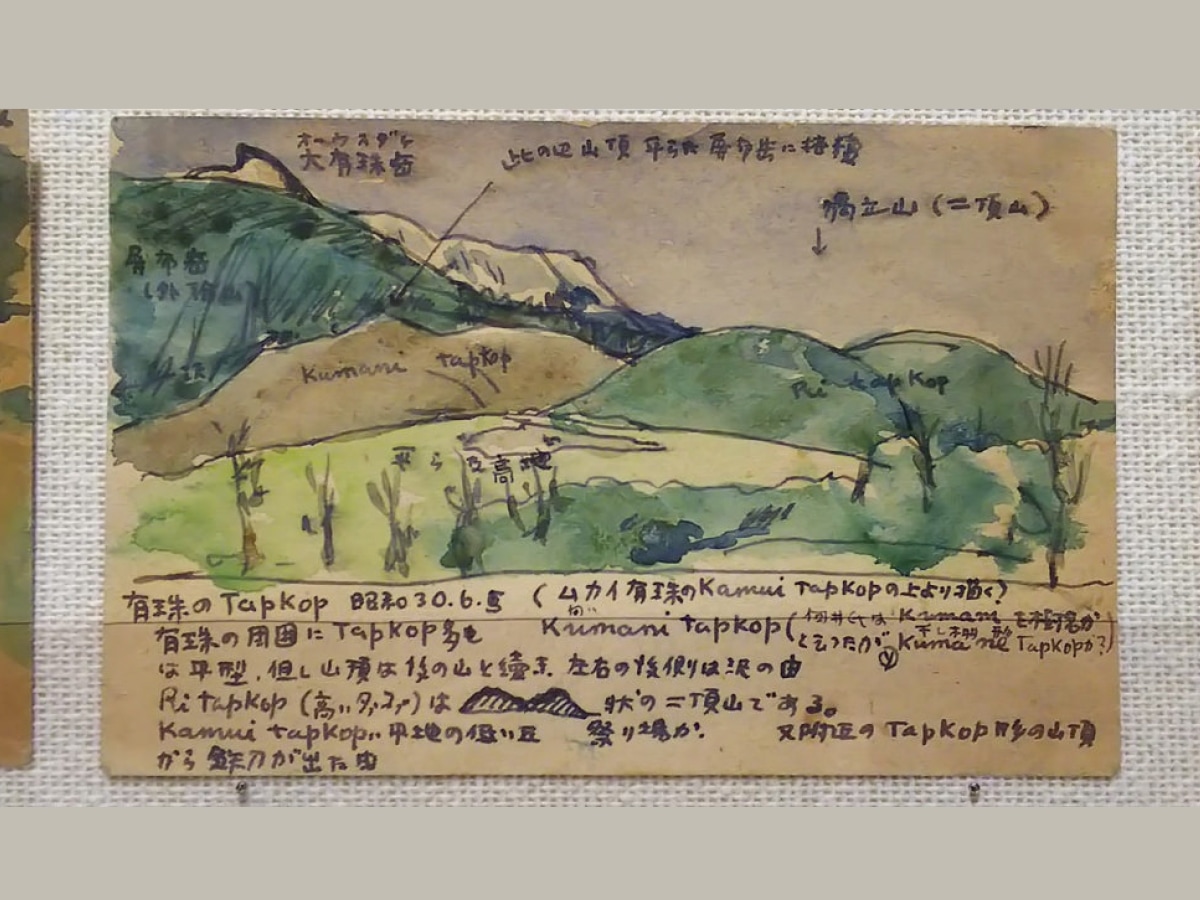 オーウスダケ
大有珠岳
此の辺山頂 平らな 屏風岳に接續
獨立山(二頂山)
↓
屏風岳
(外輪山)
Kumani tapkop
Ri tapkop
平らな高地
有珠のTapkop 昭和30.6.5 (ムカイ有珠のKamui Tapkopの上より描く)
有珠の周囲にTapkop多し Kumani tapkop( Kumani
Kuma Tapkopか?)
は平型.但し山頂は後の山と續き 左右の後側は沢の由
Ri tapkop (高いタプコプ)は 状の二頂山である。
Kamui tapkopは平地の低い丘 祭り場か. 又附近の Tapkop形の山頂
から鉄刀が出た由